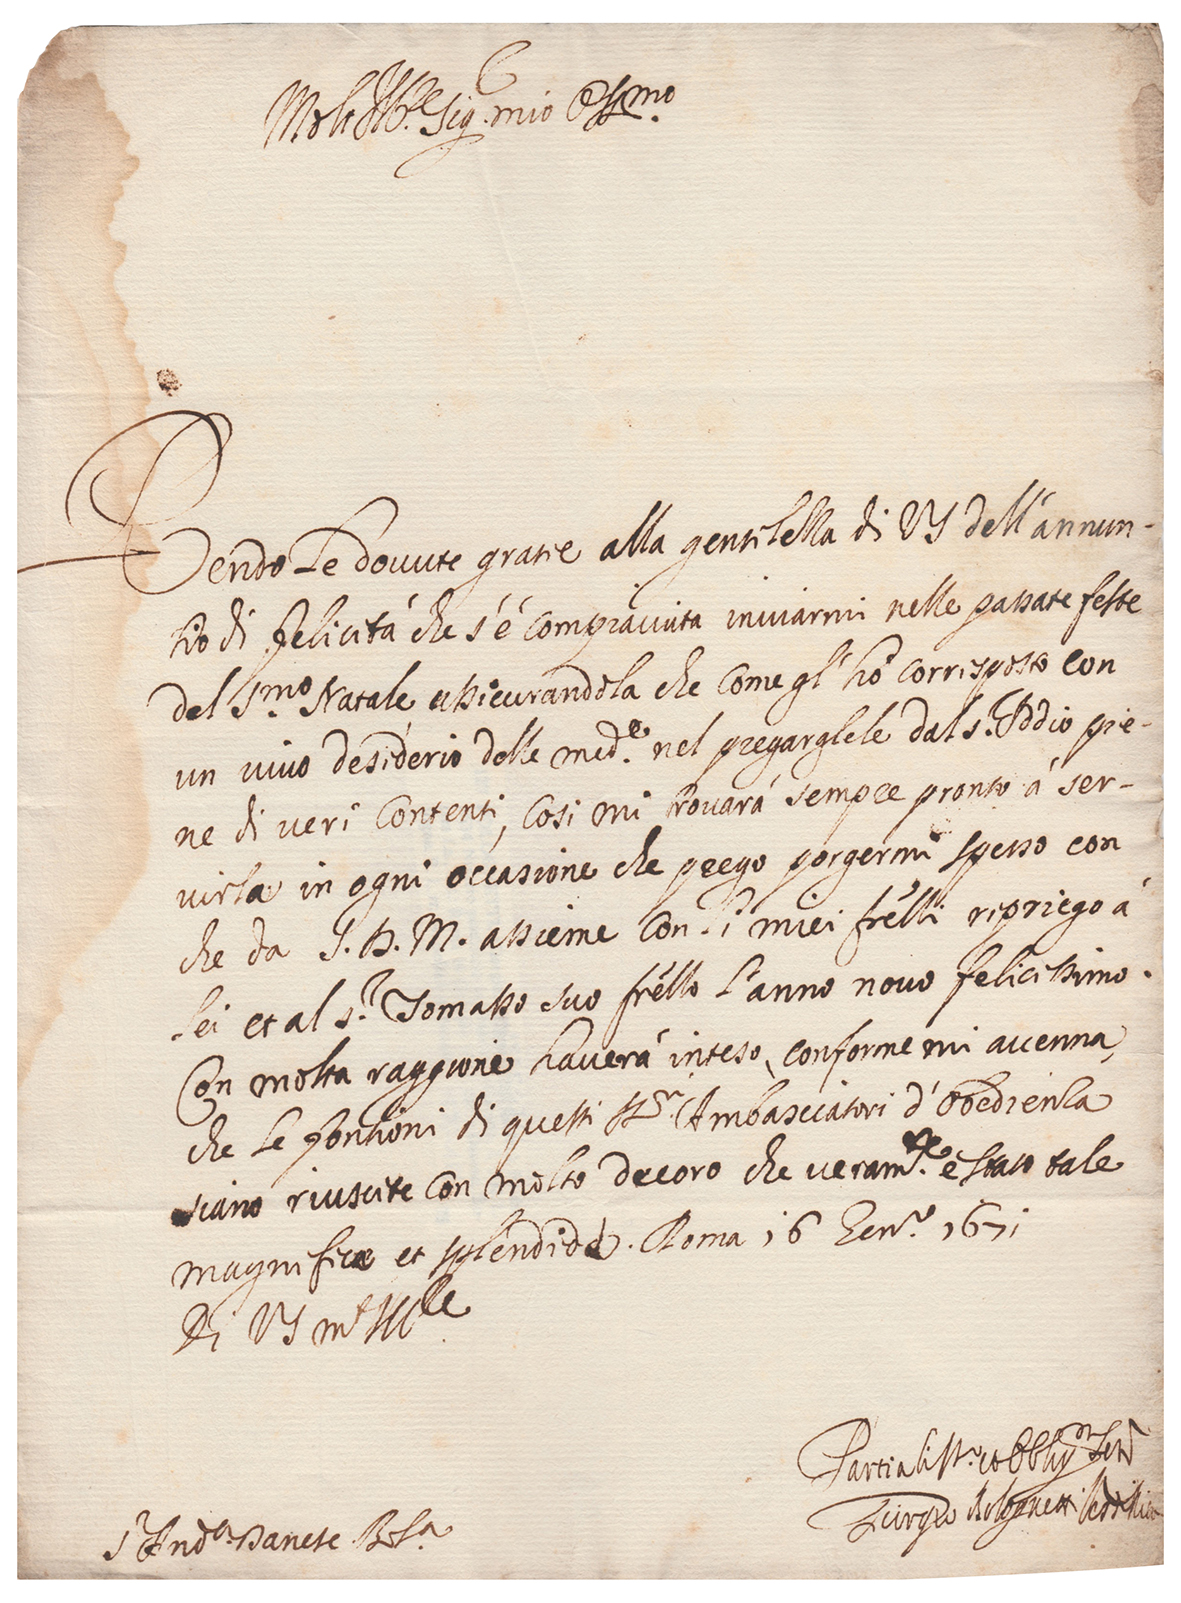 Molt Ill.re Sig. mio Oss.mo
Rendo le dovute gratie alla gentilezza di VS dell'annun-
tio di felicità che s'é compiaciuta inviarmi nelle passate feste
del S.mo Natale assicurandola che come gl'hò corrisposto con
un vivo desiderio delle med.e nel pregarglele dal S. Iddio pie-
ne di veri contenti, cosi mi trovarà sempre pronto á ser-
virla in ogni occasione che prego porgermi spesso con
che da S. D. M. assieme con i miei frẽlli ripriego á
lei et al S.r Tomasso suo frẽllo l'anno novo felicissimo.
Con molta raggione haverá inteso, conforme mi accenna,
che le fontioni di questi SS.ri Ambasciatori d'Obedienza
siano riuscite con molto decoro che veram.te é stato tale
magnifica et splendida. Roma 16 Gen.ro 1671
Di VS m.t Ill.re
Partialiss.o et Obblig.mo Ser.
Giorgio Bolognetti
S.r And.a Danese B.la